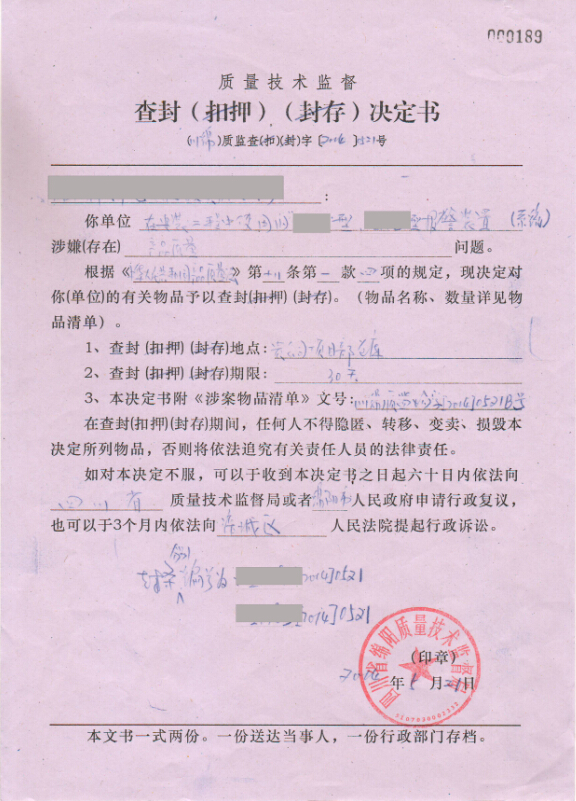 000189
质量技术监督
查封（扣押）（封存）决定书
(川绵)质监查(扣)(封)字[2014]0521号
:
你单位 型 型报警装置（系统）
涉嫌(存在) 产品质量 问题。
根据《中华人民共和国产品质量法》第十八条第一款四项的规定，现决定对
你(单位)的有关物品予以查封(扣押)(封存)。（物品名称、数量详见物
品清单）。
1、查封(扣押)(封存)地点: 项目部仓库
2、查封(扣押)(封存)期限: 30天
3、本决定书附《涉案物品清单》文号: [2014]0521号
在查封(扣押)(封存)期间，任何人不得隐匿、转移、变卖、损毁本
决定所列物品，否则将依法追究有关责任人员的法律责任。
如对本决定不服，可以于收到本决定书之日起六十日内依法向
四川省 质量技术监督局或者绵阳市人民政府申请行政复议，
也可以于3个月内依法向 涪城区 人民法院提起行政诉讼。
封条 编号为 2014]0521
2014]0521
四川省绵阳质量技术监督局
(印章)
2014 年 5 月 21 日
本文书一式两份。一份送达当事人，一份行政部门存档。